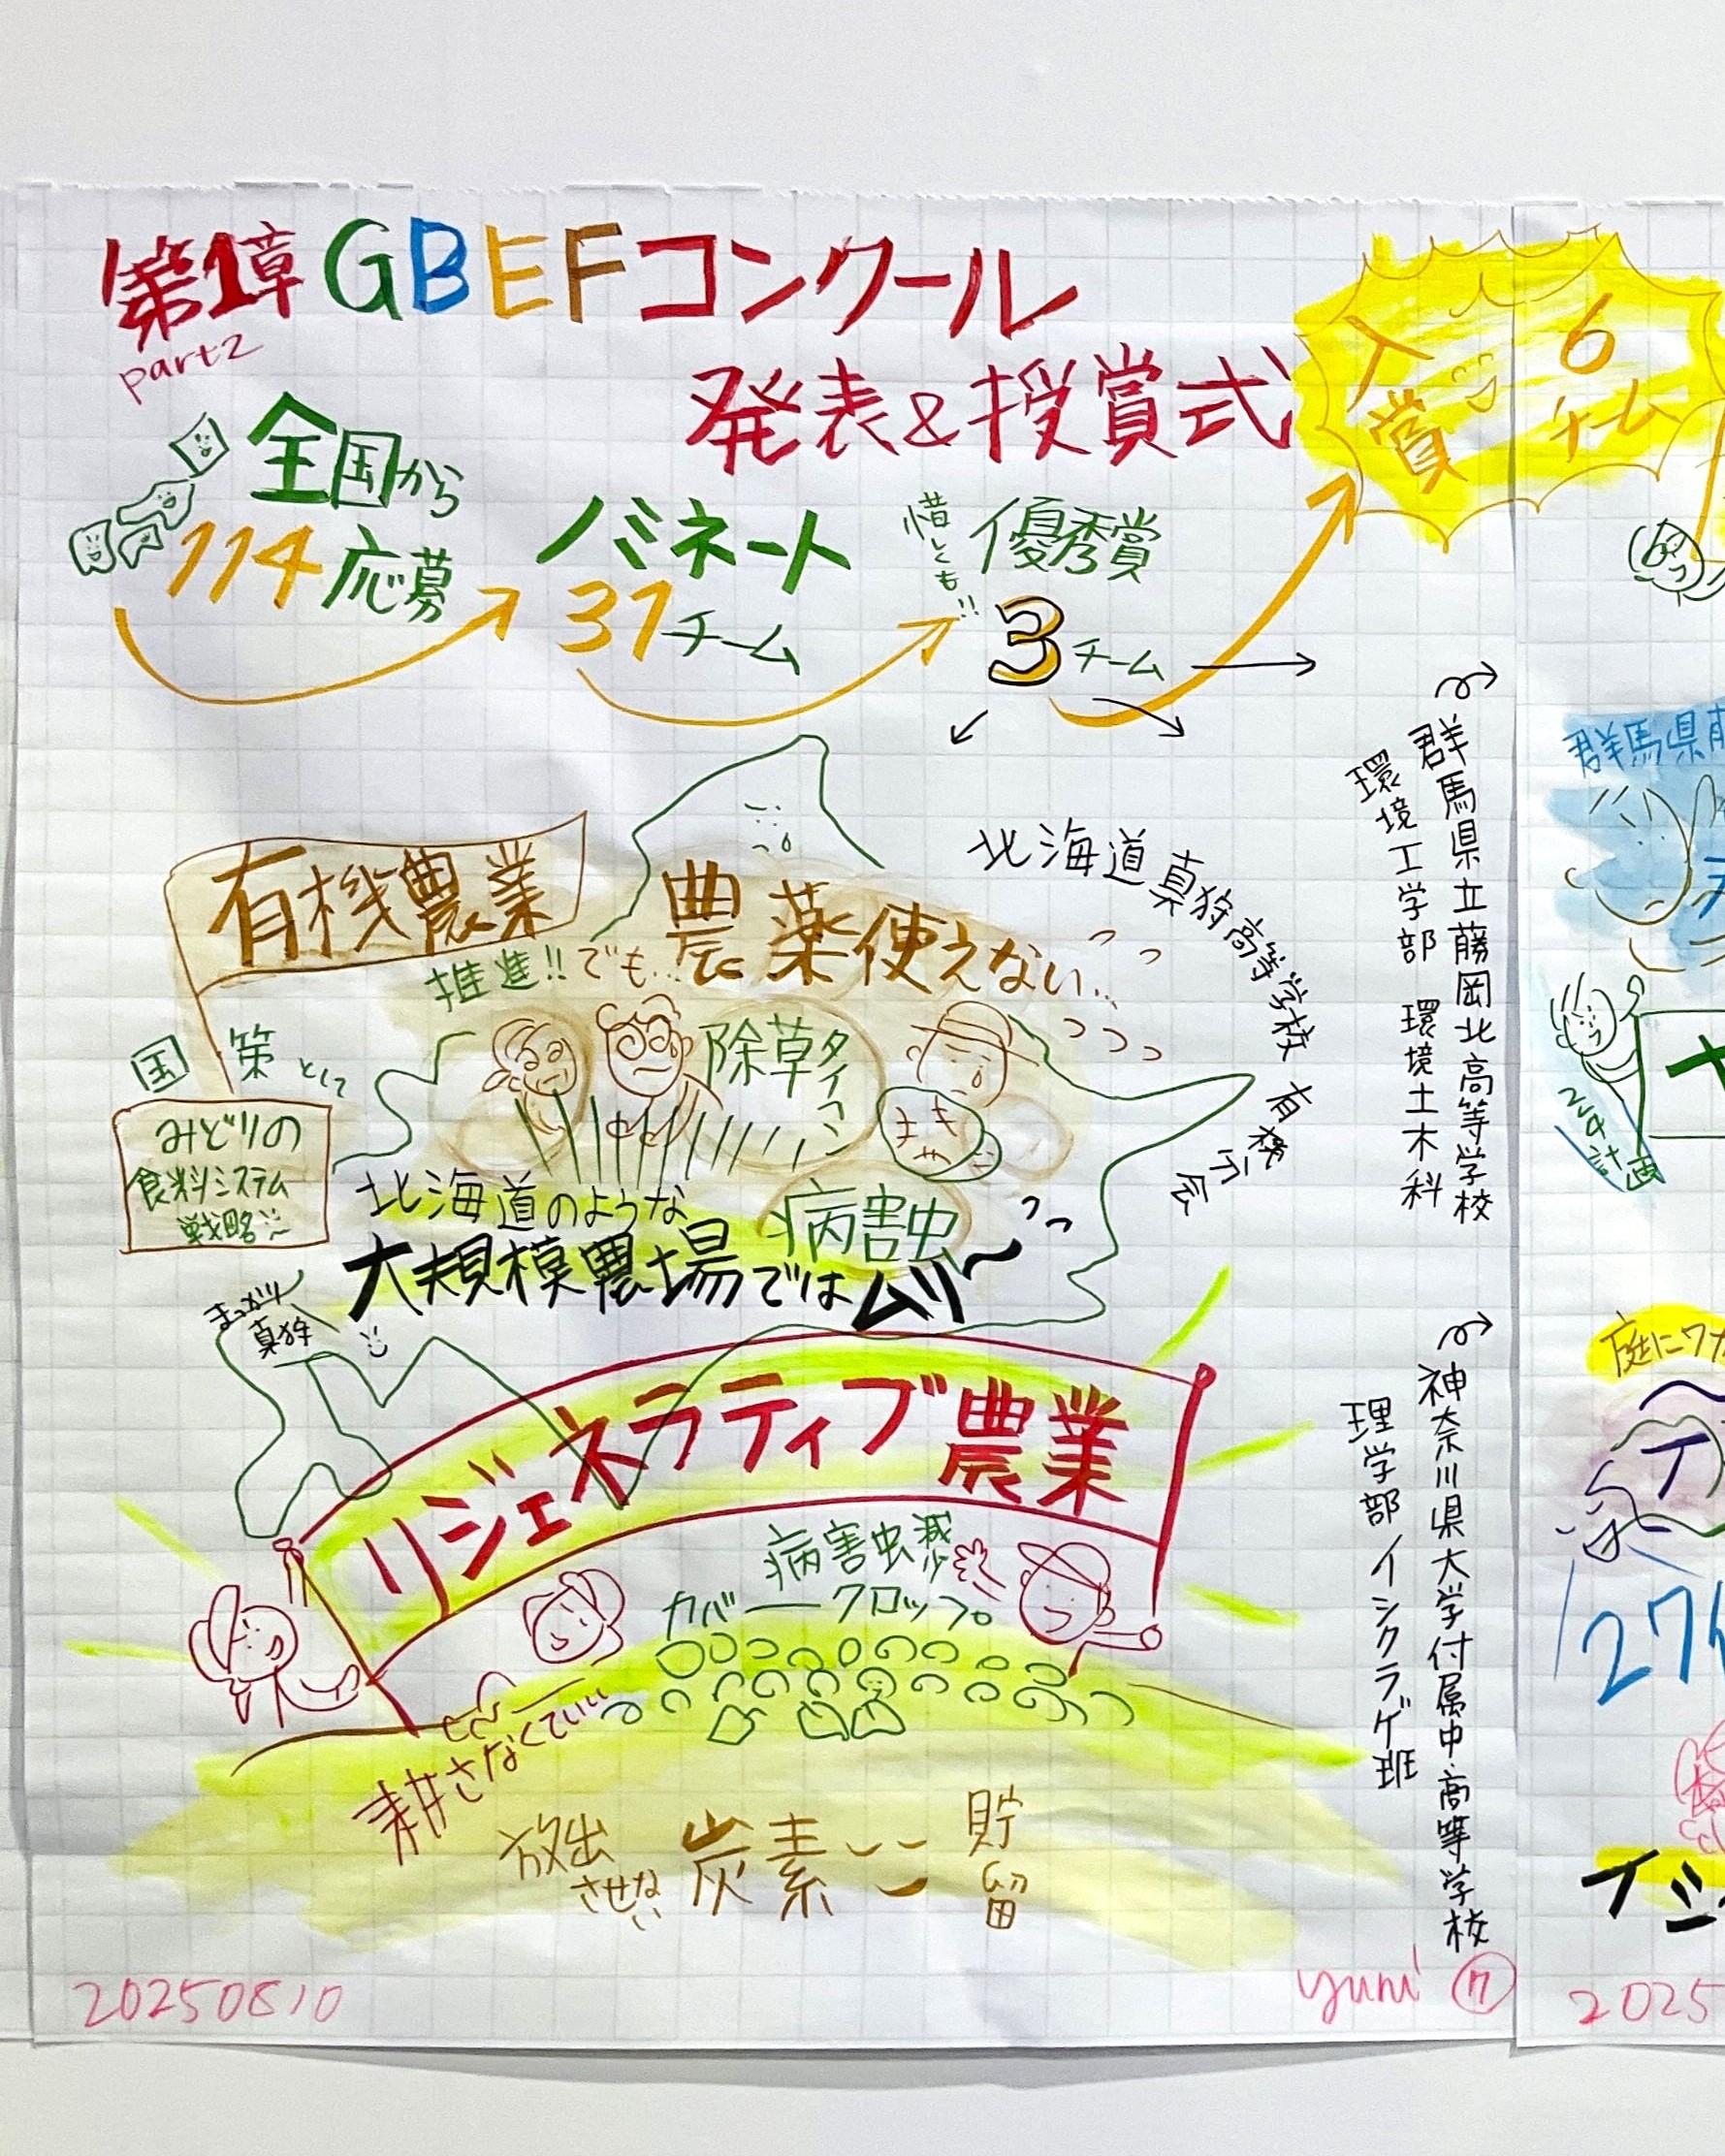 第1章 GBEFコンクール
part2
発表&授賞式
全国から
114応募
ノミネート
31チーム
惜しくも!!
優秀賞
3チーム
入賞
6チーム
有機農業
推進!!でも…
農薬使えない…
国策として
みどりの
食料システム
戦略
除草タイヘン
病害虫
北海道のような
大規模農場ではムリ〜
まっかり
真狩
北海道真狩高等学校 有機分会
群馬県立藤岡北高等学校
環境工学部 環境土木科
神奈川県大学付属中・高等学校
理学部 イシクラゲ班
リジェネラティブ農業
病害虫減
カバークロップ。
耕さなくていい
放出
させない
炭素
貯留
20250810
yuni ⑦
群馬県
計画
庭に
27
2025